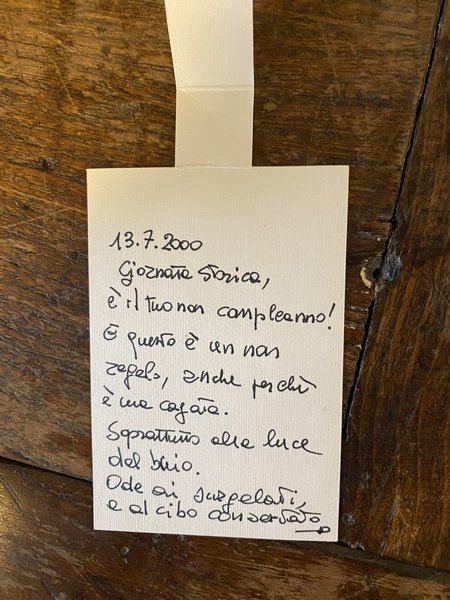 13.7.2000
Giornata storica,
è il tuo non compleanno!
E questo è un non
regalo, anche perché
è una cagata.
Soprattutto alla luce
del buio.
Ode ai surgelati,
e al cibo conservato